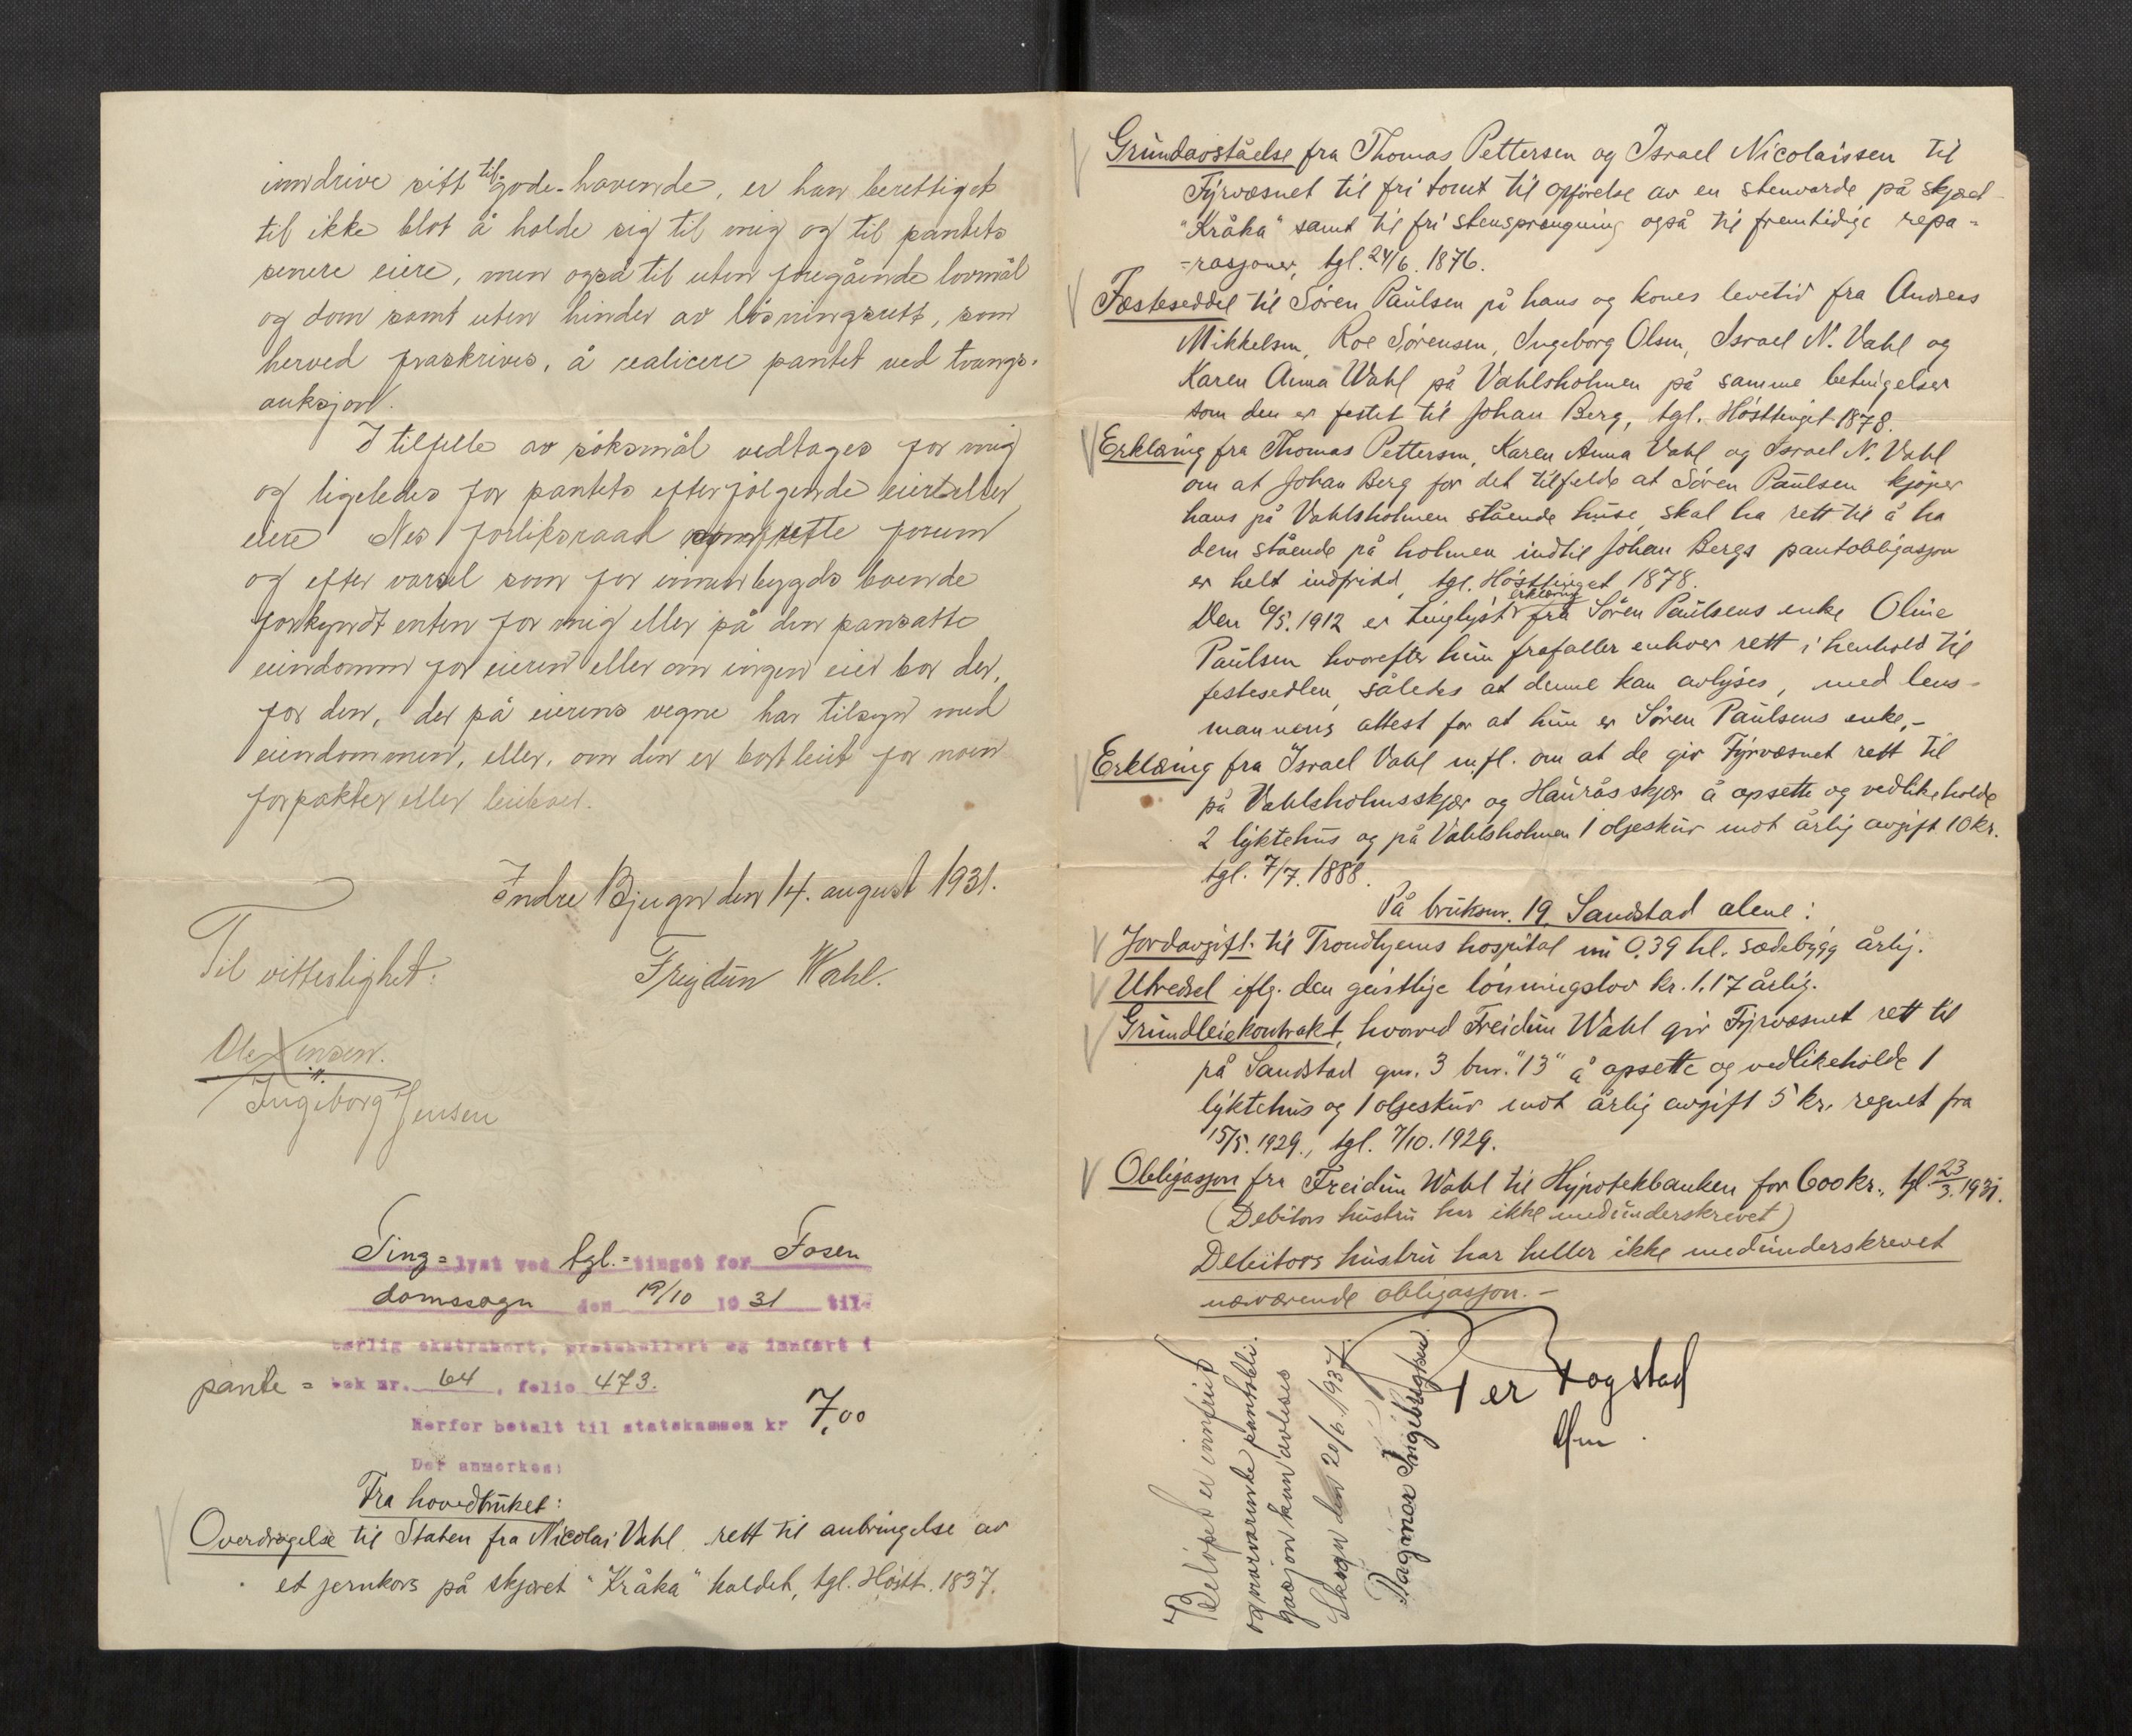 inndrive sitt til-gode-havende, er han berettiget
til ikke blot å holde sig til mig og til pantets
senere eiere, men også til uten foregående lovmål
og dom samt uten hinder av løsningsrett, som
herved fraskrives, å realicere pantet ved tvangs-
auksjon.
I tilfelle av søksmål vedtages for mig
og ligeledes for pantets efterfølgende eier eller
eiere Nes forliksraad som rette forum
og efter varsel som for innenbygds boende
forkyndt enten for mig eller på den pansatte
eiendomm for eieren eller om ingen eier bor der,
for den, der på eierens vegne har tilsyn med
eiendommen, eller, om den er bortleiet for noen
forpakter eller leieboer.
Indre Bjugn den 14. august 1931.
Til vitterlighet:
Freydun Wahl.
Ole Jensen.
Ingeborg Jensen
Ting=lyst ved tgl.=tinget for Fosen
domssogn den 19/10 1931 til-
børlig ekstrahert, protokollert og innført i
pante=bok nr. 64, folio 473.
Herfor betalt til statskassen kr 7,00
Der anmerkes:
Fra hovedbruket:
Overdragelse til Staten fra Nicolai Vahl rett til anbringelse av
et jernkors på skjæret "Kråka" kaldet, tgl. Høstt. 1837.
Grundavståelse fra Thomas Pettersen og Israel Nicolaissen til
Fyrvæsnet til fri tomt til opførelse av en stenvarde på skjæret
"Kråka" samt til fri stensprængning også til fremtidige repa=
=rasjoner, tgl. 24/6. 1876.
Festeseddel til Sören Paulsen på hans og kones levetid fra Andreas
Mikkelsen, Roe Sørensen, Ingeborg Olsen, Israel N. Vahl og
Karen Anna Wahl på Vahlsholmen på samme betingelser
som den er festet til Johan Berg, tgl. Hösttinget 1878.
Erklæring fra Thomas Pettersen, Karen Anna Vahl og Israel N. Vahl
om at Johan Berg for det tilfelde at Sören Paulsen kjøper
hans på Vahlsholmen stående huse, skal ha rett til å ha
dem stående på holmen indtil Johan Bergs pantobligasjon
er helt indfridd, tgl. Hösttinget 1878.
Den 6/5. 1912 er tinglyst erklæring fra Sören Paulsens enke Oline
Paulsen hvorefter hun frafaller enhver rett i henhold til
festesedlen, således at denne kan avlyses, med lens-
mannens attest for at hun er Sören Paulsens enke.-
Erklæring fra Israel Vahl m.fl. om at de gir Fyrvæsnet rett til
på Vahlsholmsskjær og Hauråsskjær å opsette og vedlikeholde
2 lyktehus og på Vahlsholmen 1 oljeskur mot årlig avgift 10 kr.
tgl. 7/7. 1888.
På bruksnr. 19, Sandstad alene:
Jordavgift til Trondhjems hospital nu 0.39 hl. sædebygg årlig.
Utredsel iflg. den geistlige lönningslov kr. 1.17 årlig.
Grundleiekontrakt, hvorved Freidun Wahl gir Fyrvæsnet rett til
på Sandstad gnr. 3 bnr. "13" å opsette og vedlikeholde 1
lyktehus og 1 oljeskur mot årlig avgift 5 kr. regnet fra
15/5. 1929., tgl. 7/10. 1929.
Obligasjon fra Freidun Wahl til Hypotekbanken for 600 kr., tgl. 23/3. 1931.
(Debitors hustru har ikke medunderskrevet)
Debitors hustru har heller ikke medunderskrevet
nærværende obligasjon.-
Per Fogstad
Beløpet er innfridd
og nærværende pantobli-
gasjon kan avleses
Skogn den 20/6. 1937.
Dagmar Ingebrigtsen.